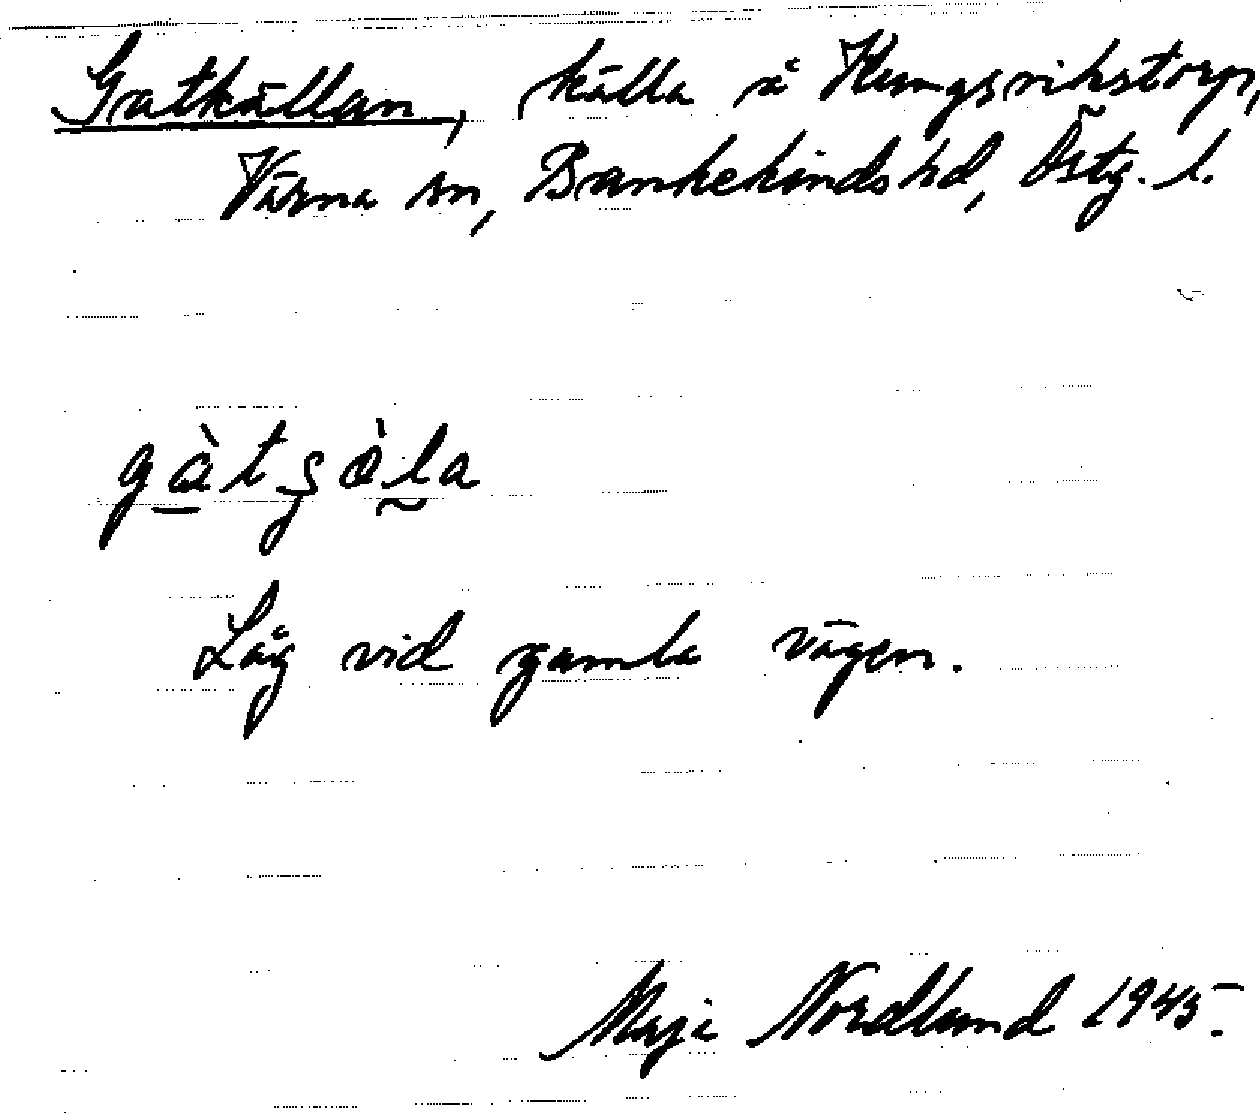 Gatkällan, källa å Kungsrikstorp,
Värna sn, Bankekinds hd, Östg. l.
Låg vid gamla vägen.
Maja Nordlund 1945.